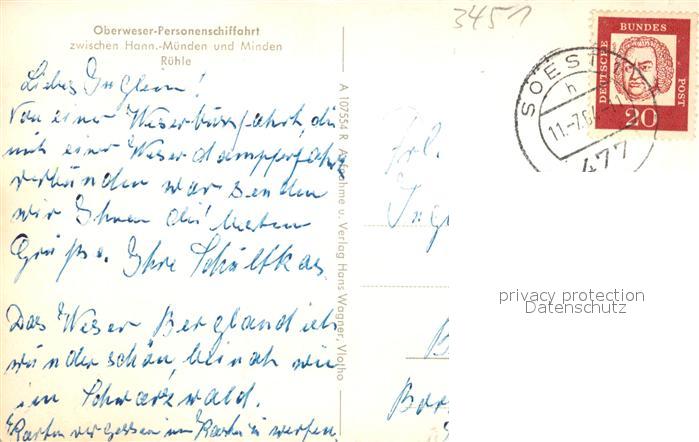 3451
Oberweser-Personenschiffahrt
zwischen Hann.-Münden und Minden
Rühle
Liebes Inglein!
Von einer Weserbusfahrt, die
mit einer Weserdampferfahrt
verbunden war senden
wir Ihnen die besten
Grüße. Ihre
Das Weser Bergland ist
wunderschön, beinah wie
im Schwarzwald.
Karten vergessen in werfen.
A 107554 R Aufnahme u. Verlag Hans Wagner, Vlotho
DEUTSCHE BUNDES POST
20
SOEST
h
11.-7.
477
Frl.
privacy protection
Datenschutz